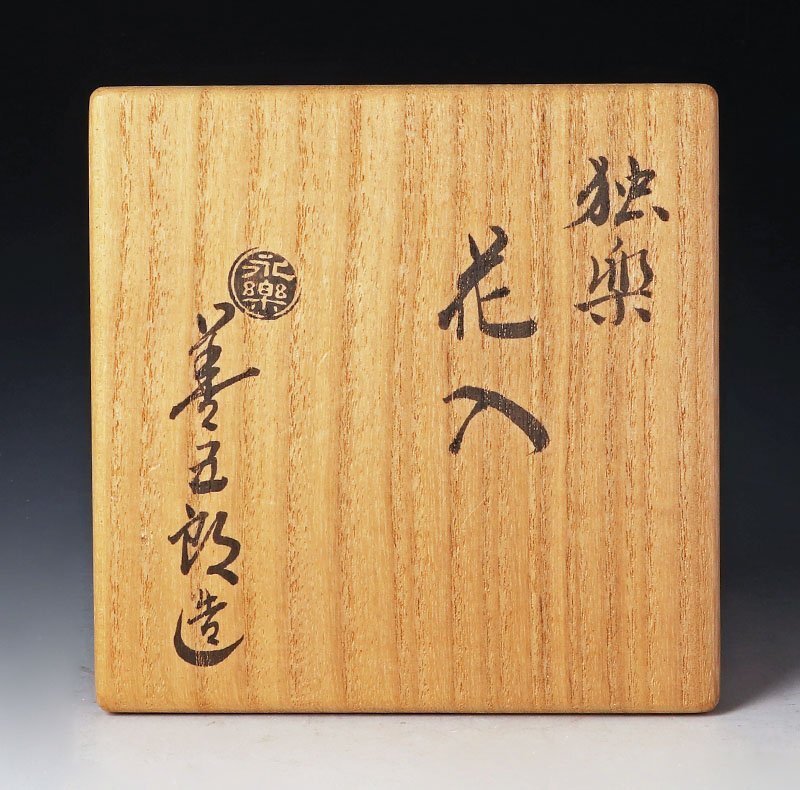 独楽
花入
永樂
善五郎造